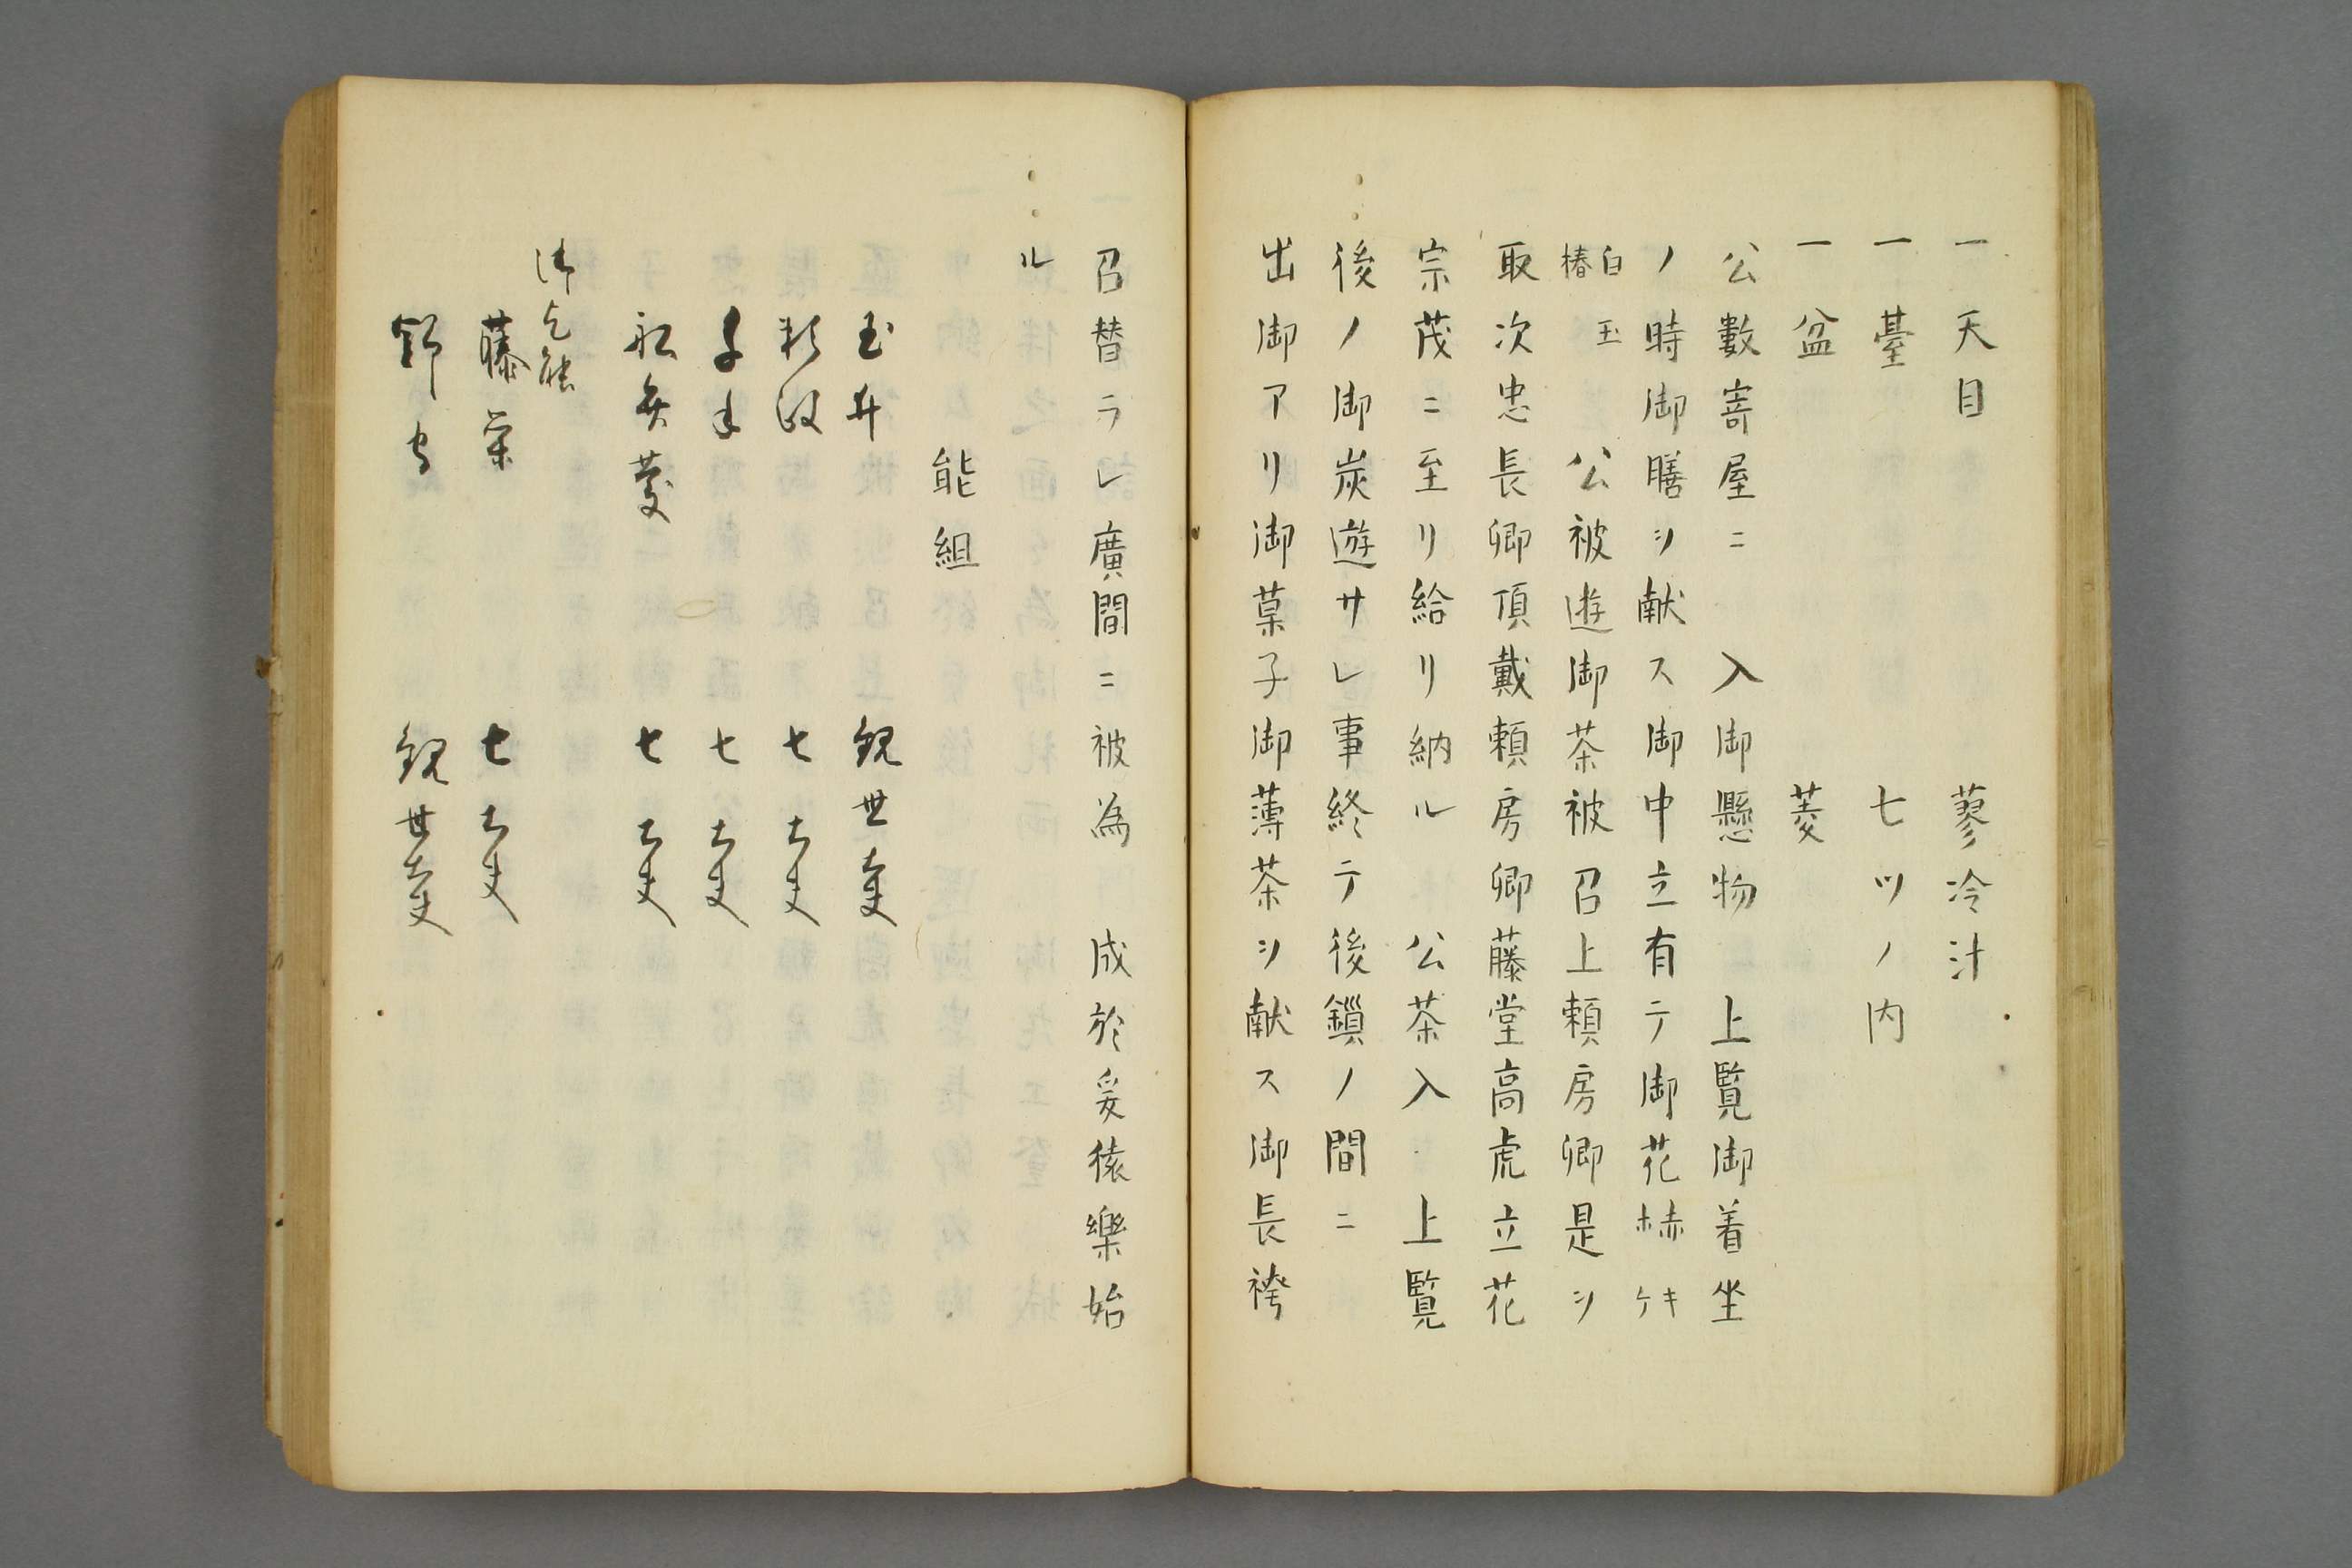 一天目　蓼冷汁
一臺　七ツノ内
一盆　菱
公數寄屋ニ　入御懸物　上覧御着坐
ノ時御膳ヲ献ス御中立有テ御花赫キケ
白玉椿　公被遊御茶被召上頼房卿是ヲ
取次忠長卿頂戴頼房卿藤堂高虎立花
宗茂ニ至リ給リ納ル　公茶入　上覧
後ノ御炭遊サレ事終テ後鎖ノ間ニ
出御アリ御菓子御薄茶ヲ献ス御長袴
召替ラレ廣間ニ被為　成於爰猿樂始
ル
能組
玉井　観世大夫
頼政　七大夫
千手　七大夫
七大夫
御乞能
藤栄　七大夫
観世大夫